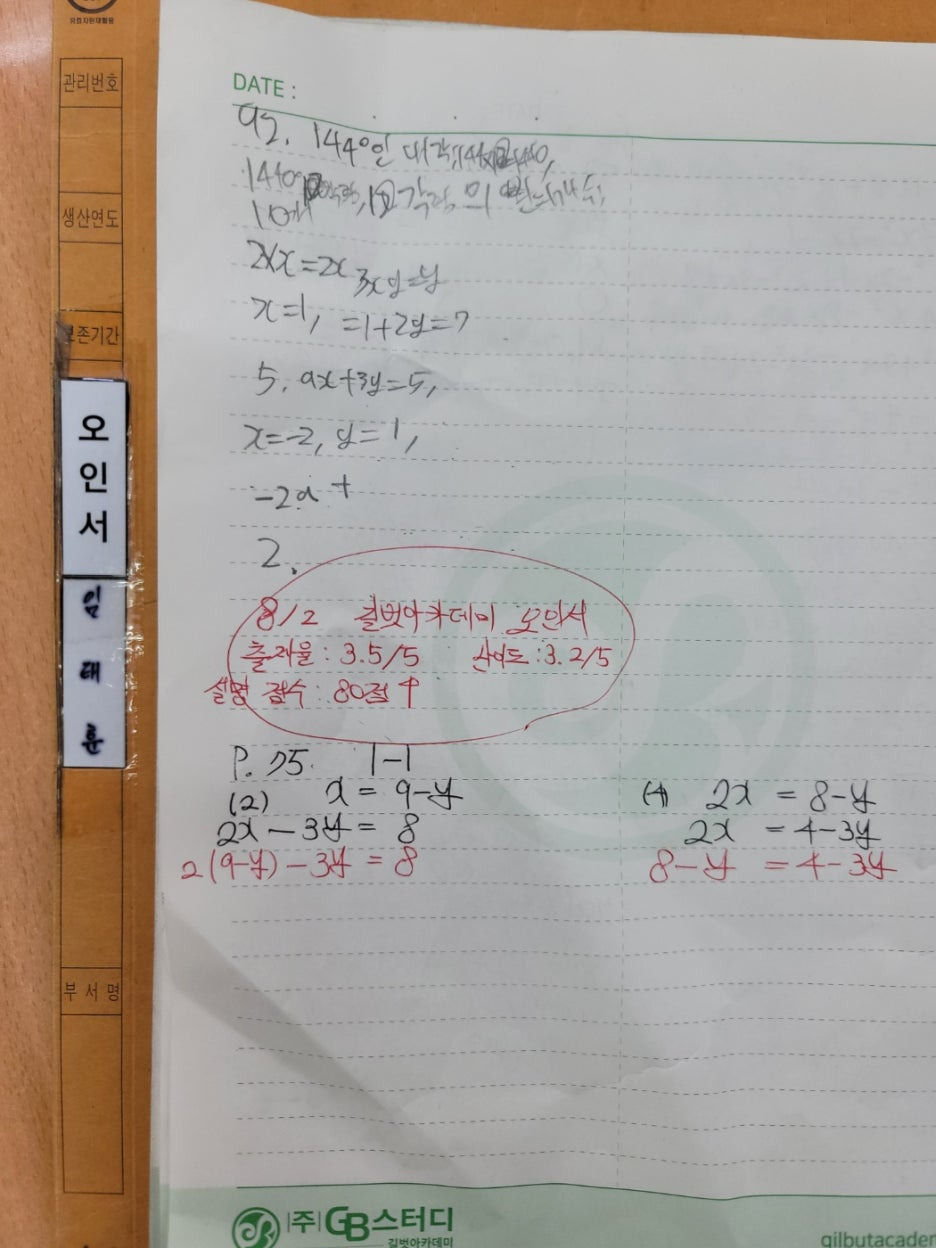 유첨지한재활용
관리번호
생산연도
보존기간
오인서
임태훈
부서명
DATE :
92. 144°인
2×x=2x 3×y=y
x=1, =1+2y=7
5. ax+3y=5,
x=-2, y=1,
-2a+
2.
8/2 길벗아카데미 오인서
출제율 : 3.5/5 난이도 : 3.2/5
설명 점수 : 80점↑
P. 75. 1-1
(2) x = 9-y
2x - 3y = 8
2(9-y) - 3y = 8
(4) 2x = 8-y
2x = 4-3y
8-y = 4-3y
(주)GB스터디
길벗아카데미
gilbutacader